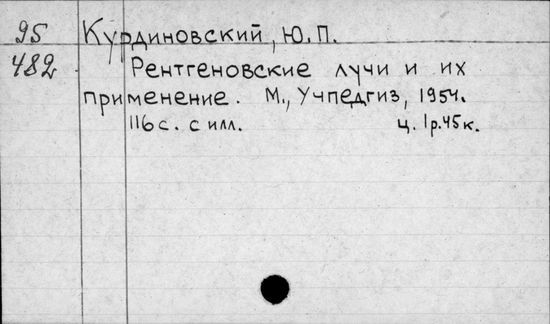 95 Курдиновский, Ю.П.
482 Рентгеновские лучи и их
применение. М., Учпедгиз, 1954.
116 с. с илл. ц. 1р.45к.